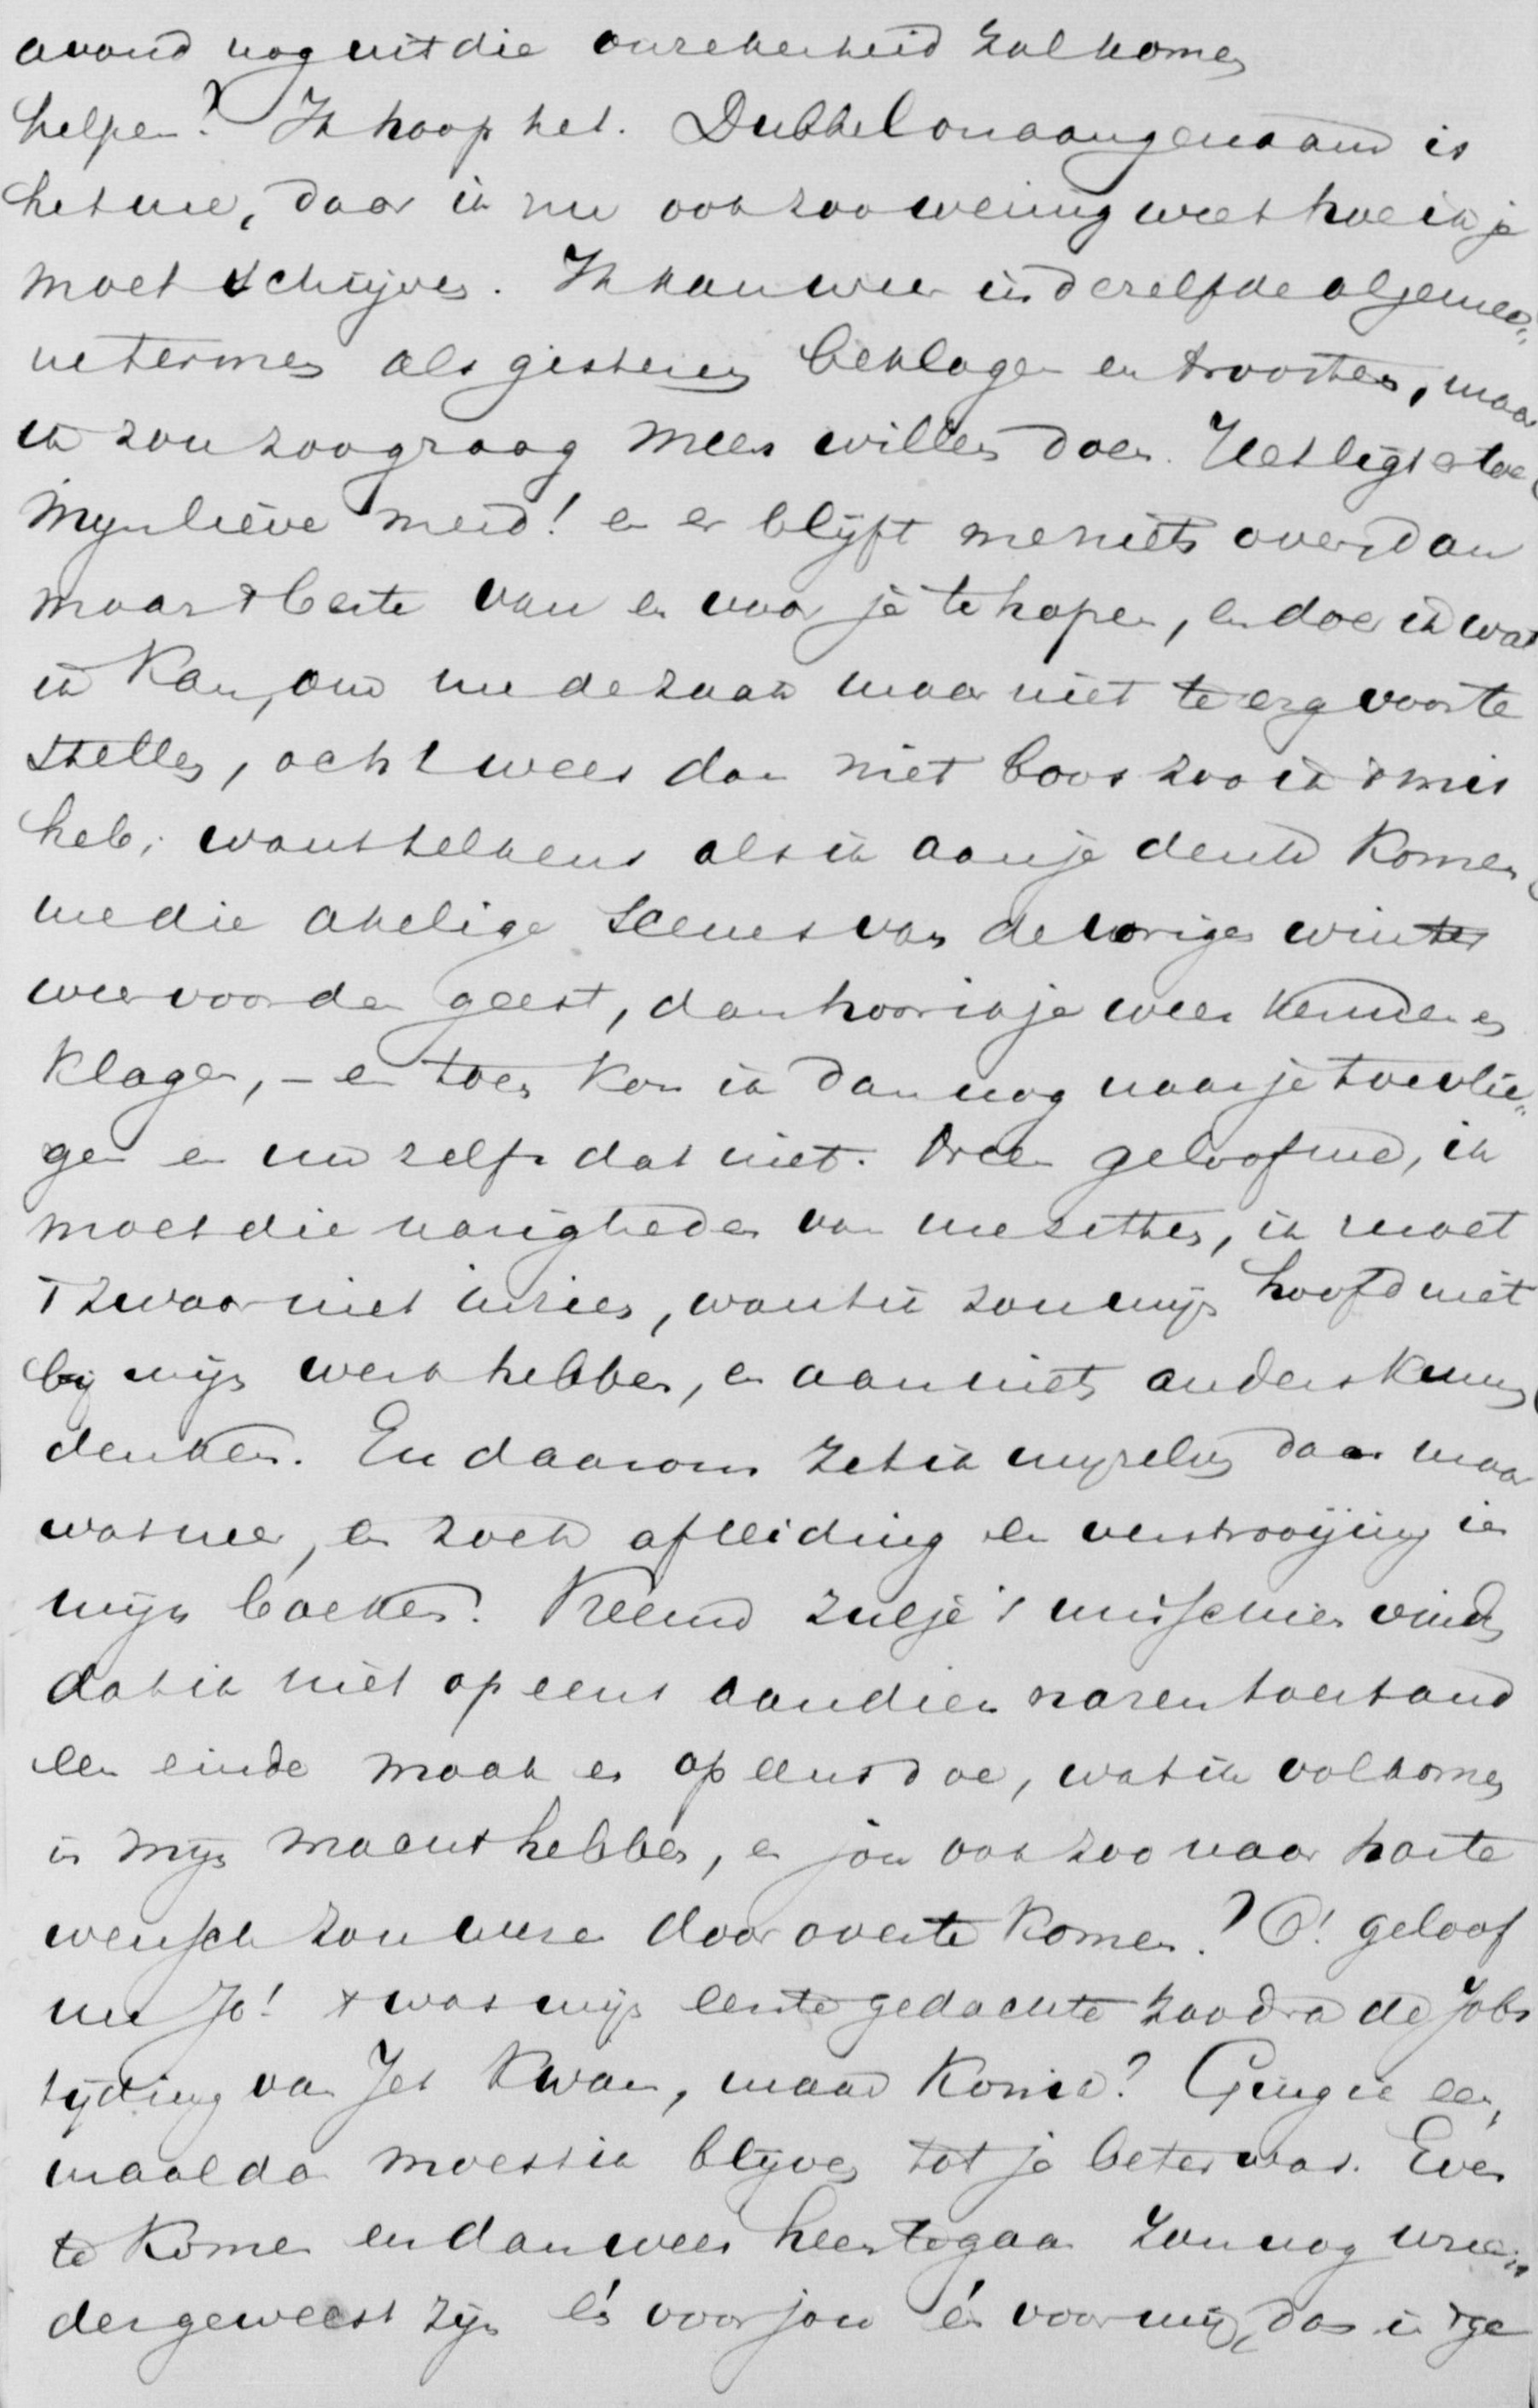 avond nog uit die onzekerheid zal komen
helpen? Ik hoop het. Dubbel onaangenaam is
het me, daar ik nu ook zoo weinig weet hoe ik je
moet schrijven. Ik kan weer in dezelfde algemee„
ne termen als gisteren beklagen en troosten, maar
ik zou zoo graag meer willen doen. Het ligt er toe
mijn lieve meid! en er blijft me niets over dan
maar 't beste van en voor je te hopen, en doe ik wat
ik kan, om me de zaak maar niet te erg voor te
stellen, och! wees dan niet boos zoo ik 't mis
heb; want telkens als ik aan je denk komen
me die akelige scenes van de vorigen winter
weer voor den geest, dan hoor ik je weer kermen en
klagen, – en toen kon ik dan nog naar je toevlie„
gen en nu zelfs dat niet. Neen geloof me, ik
moet die narigheden van me zetten, ik moet
't zwaar niet inzien, want ik zou mijn hoofd niet
bij mijn werk hebben, en aan niets anders kunnen
denken. En daarom zet ik mijzelven daar maar
wat neer, en zoek afleiding en verstrooijing in
mijn boeken. Vreemd zul je 't misschien vinden
dat ik niet opeens aan dien naren toestand
een einde maak en opeens doe, wat ik volkomen
in mijn macht heb, en jou ook zoo naar harte
wensch zou wezen door over te komen? O! geloof
me Jo! 't was mijn eerste gedachte zoodra de Jobs
tijding van Jet kwam, maar kon ik? Ging ik een„
maal dan moest ik blijven tot je beter was. Even
te komen en dan weer heen te gaan zou nog wree„
der geweest zijn én voor jou én voor mij, dan in 't ge